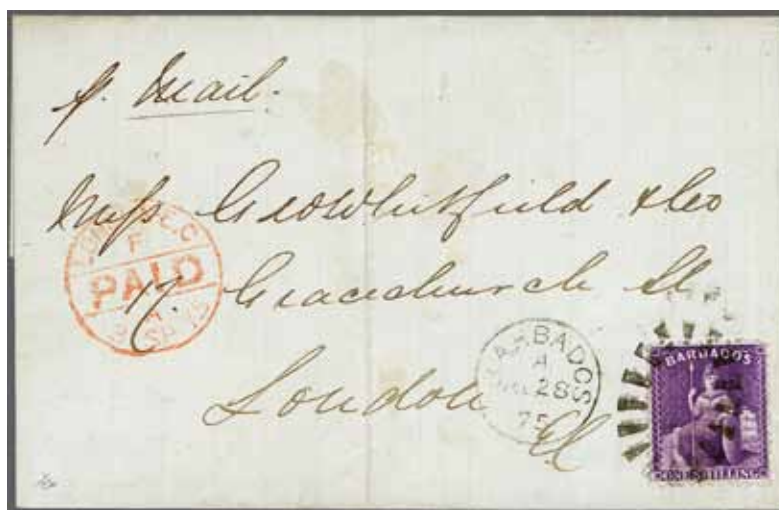 p. Mail.
Messs Geo Whitfield & Co
17. Gracechurch St
London
LONDON E.C
F
PAID
BARBADOS
A
28
75
BARBADOS
ONE SHILLING